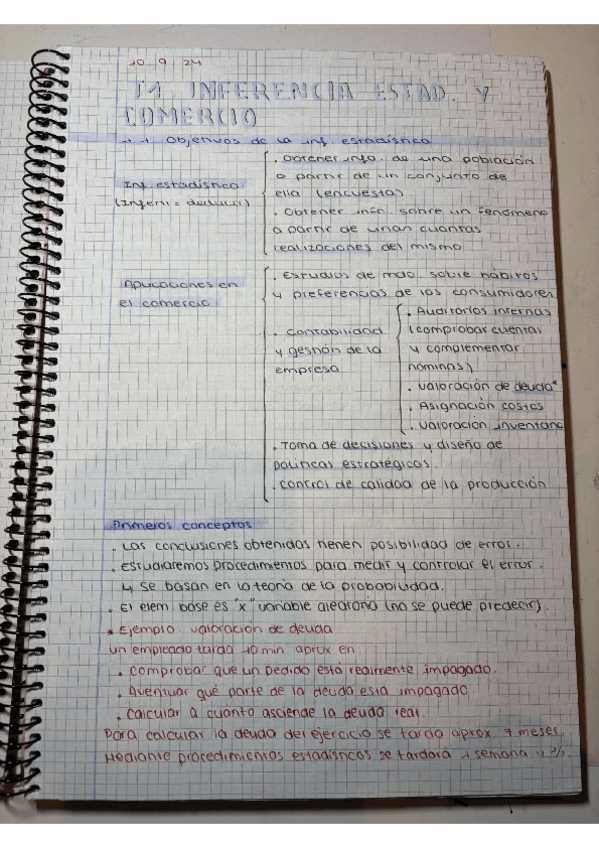 10 9 24
T1 INFERENCIA ESTAD. Y
COMERCIO
1.1 Objetivos de la inf estadística
Inf. estadística
(Inferir = deducir)
. Obtener info. de una población
a partir de un conjunto de
ella (encuesta)
. Obtener infn. sobre un fenómeno
a partir de unan cuantas
realizaciones del mismo.
Aplicaciones en
el comercio
. Estudios de mdo. sobre hábitos
y preferencias de los consumidores
. Contabilidad
y gestión de la
empresa
. Auditorías internas
(comprobar cuentas
y complementar
nóminas)
. Valoración de deuda*
. Asignación costes
. Valoración inventario
. Toma de decisiones y diseño de
políticas estratégicas.
. Control de calidad de la producción
Primeros conceptos
. Las conclusiones obtenidas tienen posibilidad de error.
. Estudiaremos procedimientos para medir y controlar el error.
↳ se basan en la teoría de la probabilidad.
. El elem. base es "x" variable aleatoria (no se puede predecir).
* Ejemplo: valoración de deuda
un empleado tarda 10 min aprox en:
. Comprobar que un pedido está realmente impagado.
. Aventuar qué parte de la deuda está impagado
. Calcular a cuánto asciende la deuda real.
Para calcular la deuda del ejercicio se tardó aprox. 7 meses,
Mediante procedimientos estadísticos se tardará 1 semana y 1/2.